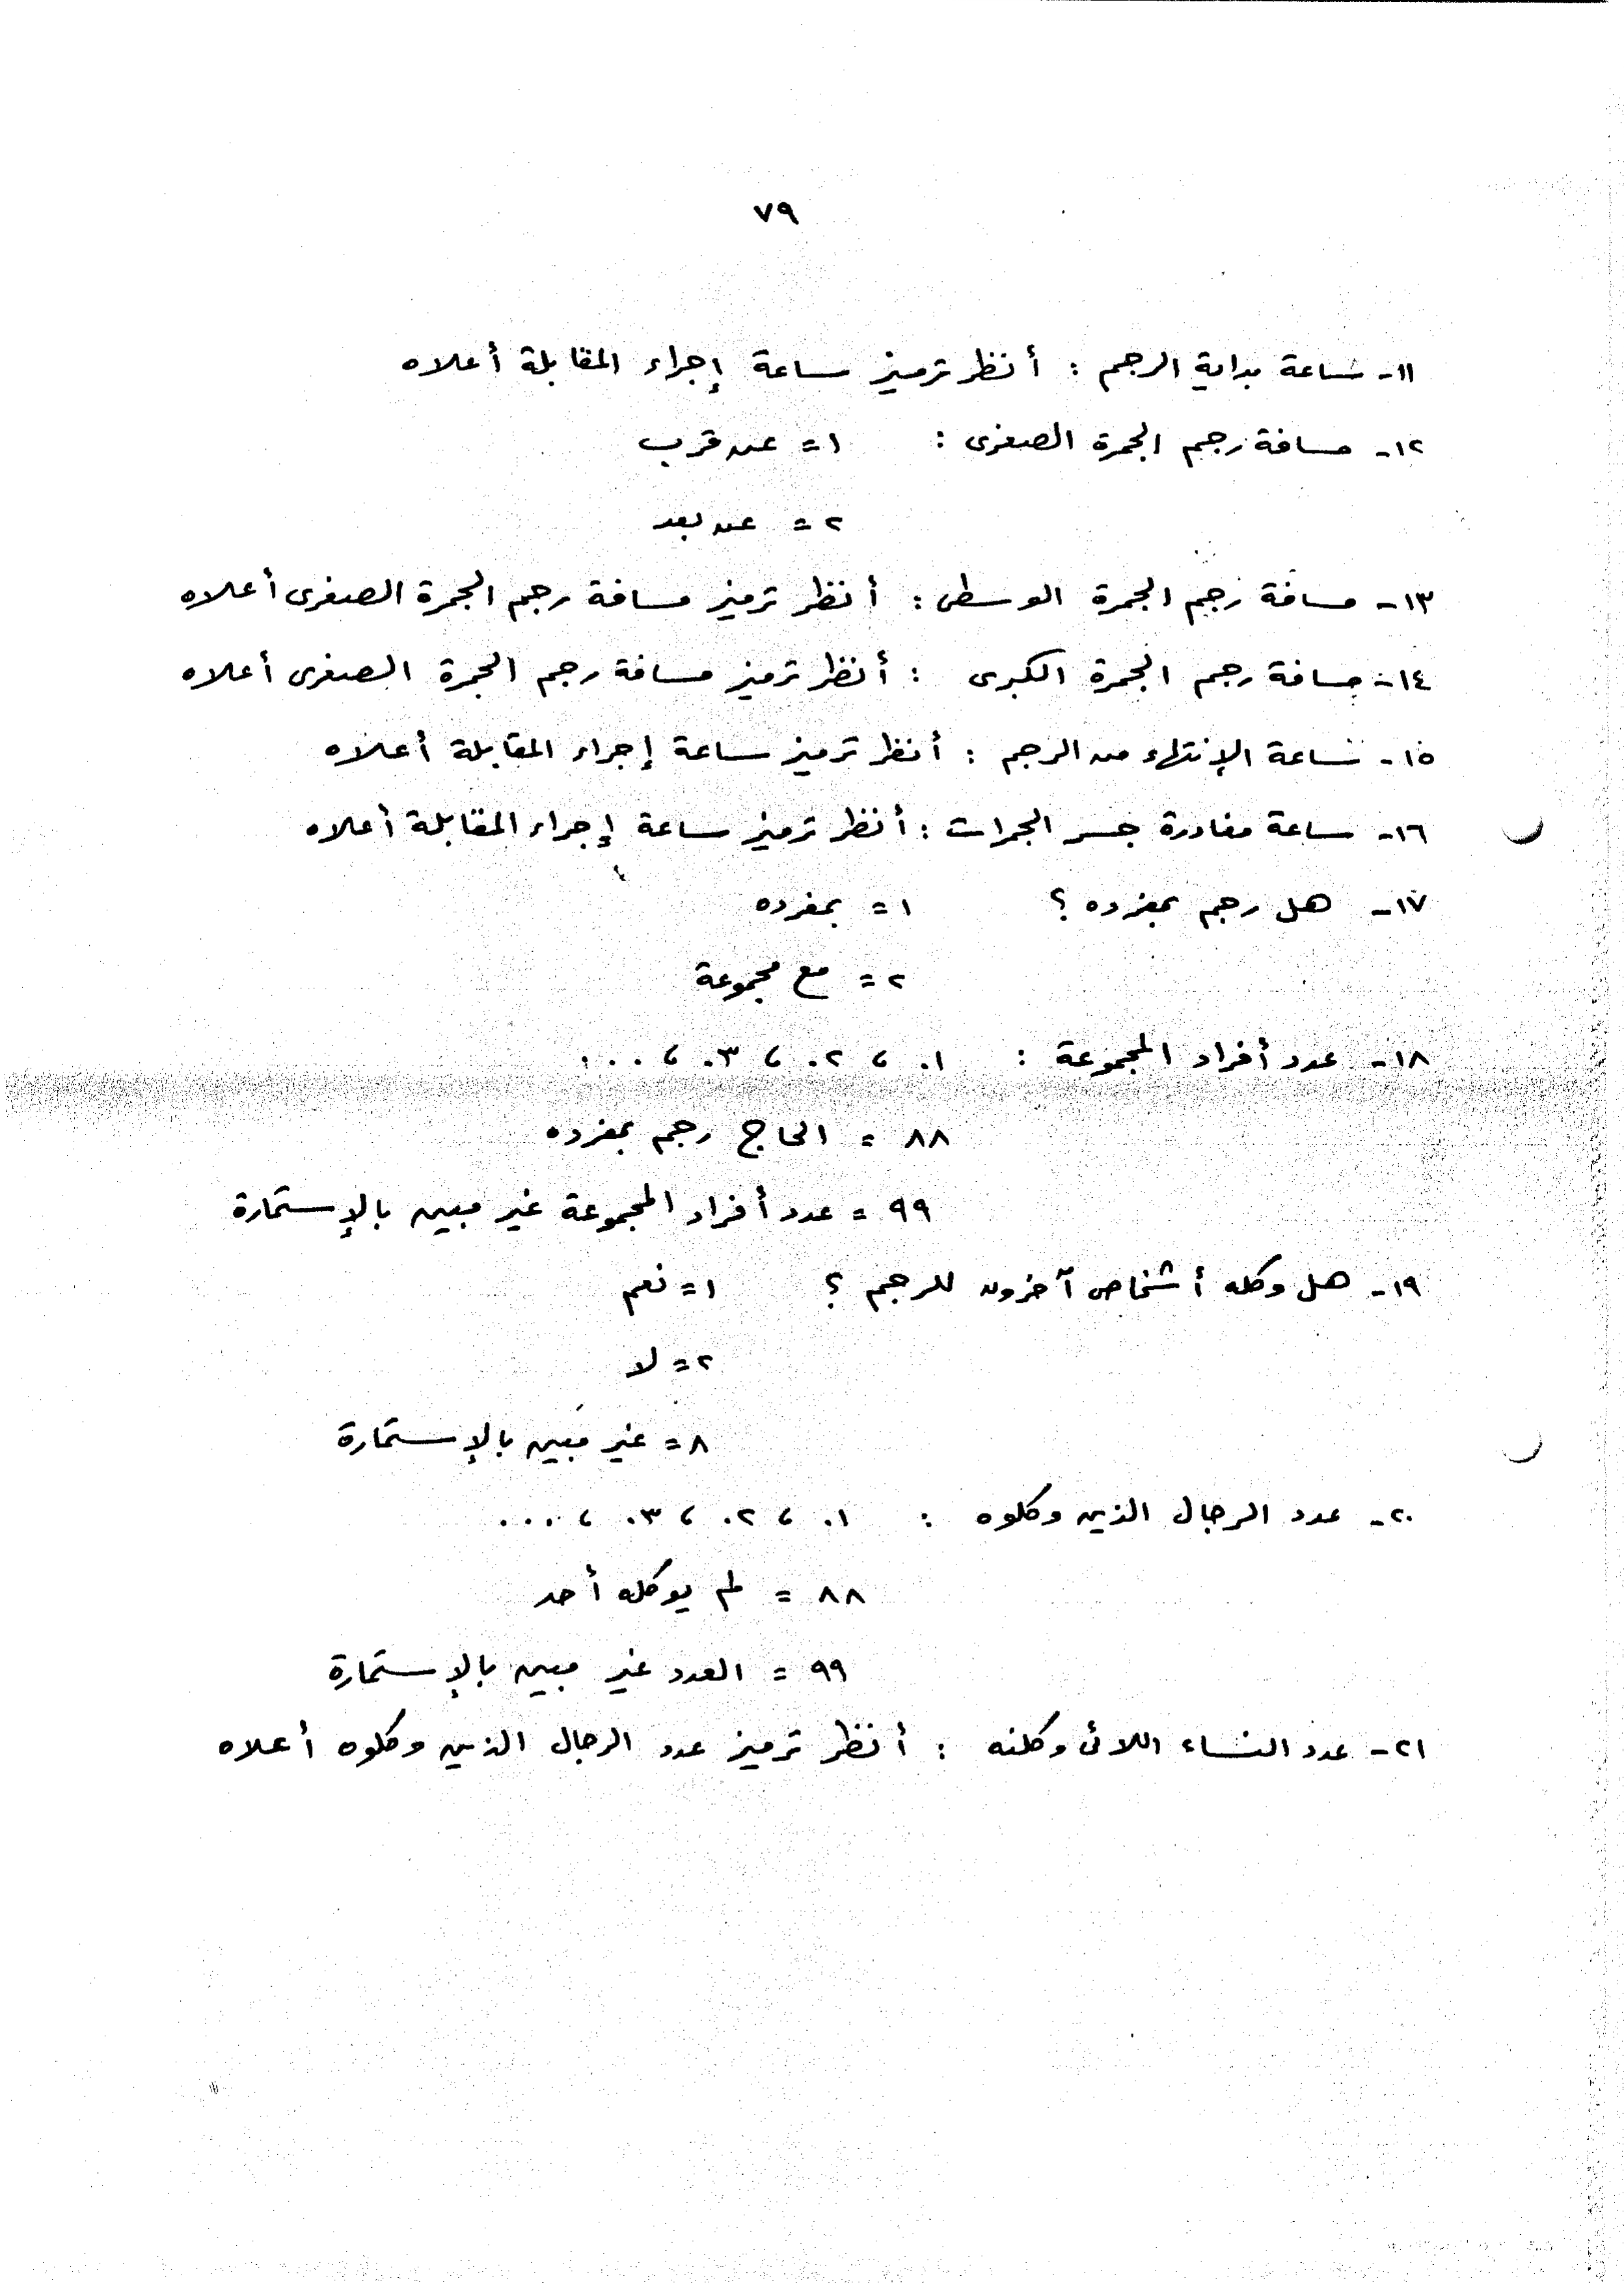 ٧٩
١١- ساعة بداية الرجم : أنظر ترميز ساعة إجراء المقابلة أعلاه
١٢- مسافة رجم الجمرة الصغرى : ١ = عن قرب
٢ = عن بعد
١٣- مسافة رجم الجمرة الوسطى : أنظر ترميز مسافة رجم الجمرة الصغرى أعلاه
١٤- مسافة رجم الجمرة الكبرى : أنظر ترميز مسافة رجم الجمرة الصغرى أعلاه
١٥- ساعة الإنتهاء من الرجم : أنظر ترميز ساعة إجراء المقابلة أعلاه
١٦- ساعة مغادرة جسر الجمرات : أنظر ترميز ساعة إجراء المقابلة أعلاه
١٧- هل رجم بمفرده ؟ ١ = بمفرده
٢ = مع مجموعة
١٨- عدد أفراد المجموعة : ٠١ ، ٠٢ ، ٠٣ ، ...
٨٨ = الحاج رجم بمفرده
٩٩ = عدد أفراد المجموعة غير مبين بالإستمارة
١٩- هل وكله أشخاص آخرون للرجم ؟ ١ = نعم
٢ = لا
٨ = غير مبين بالإستمارة
٢٠- عدد الرجال الذين وكلوه : ٠١ ، ٠٢ ، ٠٣ ، ...
٨٨ = لم يوكله أحد
٩٩ = العدد غير مبين بالإستمارة
٢١- عدد النساء اللائى وكلنه : أنظر ترميز عدد الرجال الذين وكلوه أعلاه